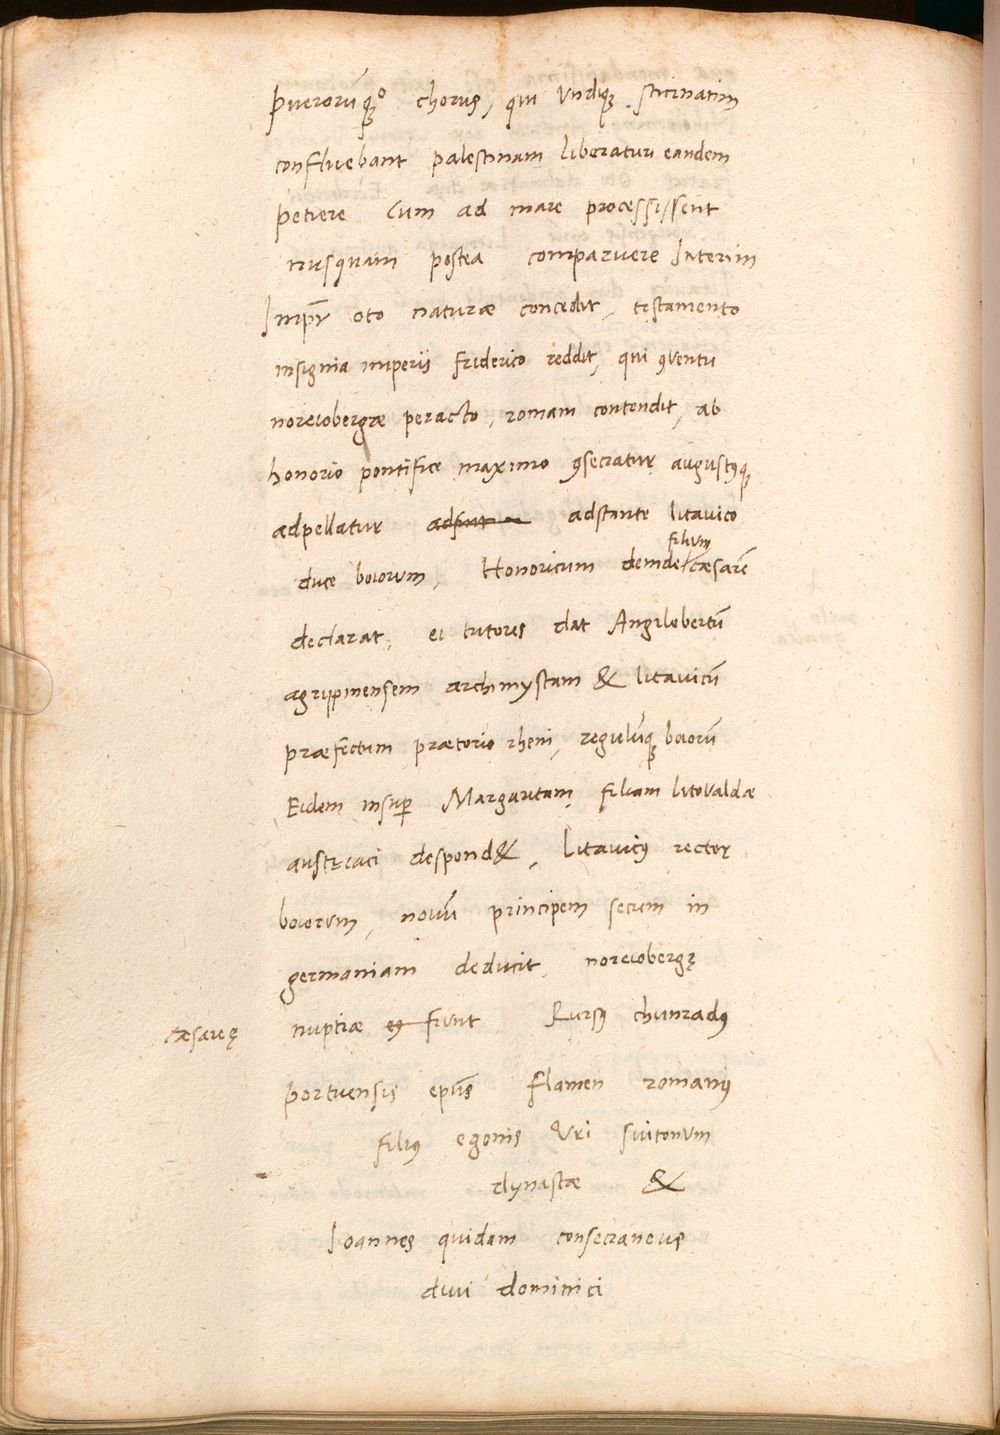 puerorū quoq; chorus, qui undiq; sticinatim
confluebant palestinam liberaturi eandem
petiere Cum ad mare processissent
nusquam postea comparuere Interim
Impr̄ oto naturæ concedit, testamento
insignia imperii friderico reddit, qui ꝯventu
noreiobergæ peracto, romam contendit, ab
honorio pontifice maximo ꝯsecratur augustꝰq;
adpellatur adstante litavico
filium
duce boiorum, Honoricum deinde cæsarē
declarat, ei tutores dat Angilobertū
agrippinensem archimystam & litavicū
præfectum prætorio rheni, regulūq; boiorū
Eidem insuper Margaritam filiam litovaldæ
austriaci despond&, Litavicꝰ rector
boiorum, novū principem secum in
germaniam deducit, noreiobergę
cæsareę nuptiæ fiunt Rursꝰ chunradꝰ
portuensis epūs flamen romanꝰ
filiꝰ egonis Uri suitonum
dynastæ &
Ioannes quidam consecraneus
divi dominici